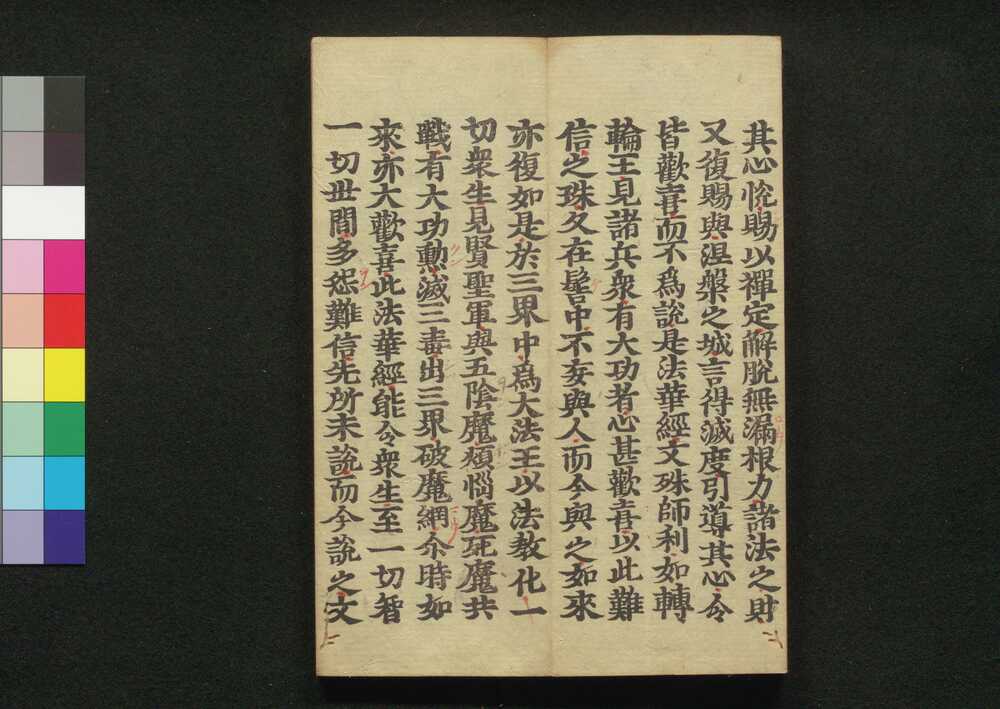 其心悅賜以禪定解脫無漏根力諸法之財
又復賜與涅槃之城言得滅度引導其心令
皆歡喜而不為說是法華經文殊師利如轉
輪王見諸兵衆有大功者心甚歡喜以此難
信之珠久在髻中不妄與人而今與之如來
亦復如是於三界中為大法王以法教化一
切衆生見賢聖軍與五陰魔煩惱魔死魔共
戰有大功勲滅三毒出三界破魔網尒時如
來亦大歡喜此法華經能令衆生至一切智
一切世間多怨難信先所未說而今說之文